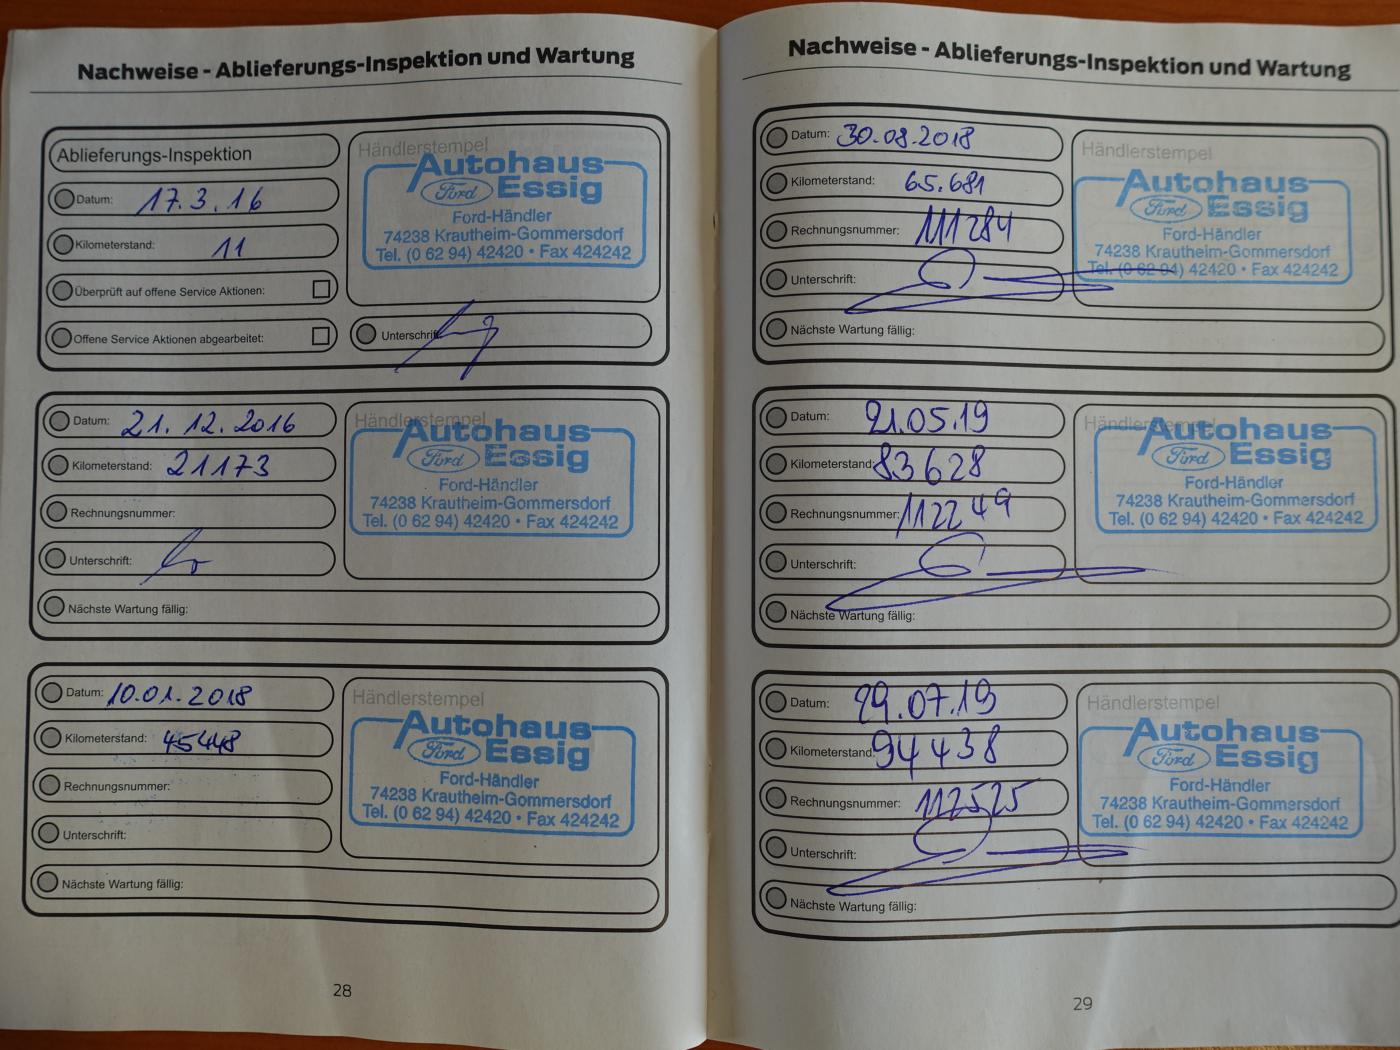 Nachweise - Ablieferungs-Inspektion und Wartung
Ablieferungs-Inspektion
Datum: 17.3.16
Kilometerstand: 11
Überprüft auf offene Service Aktionen:
Offene Service Aktionen abgearbeitet:
Händlerstempel
Autohaus
Ford Essig
Ford-Händler
74238 Krautheim-Gommersdorf
Tel. (0 62 94) 42420 • Fax 424242
Unterschrift:
Datum: 21.12.2016
Kilometerstand: 21173
Rechnungsnummer:
Unterschrift:
Händlerstempel
Autohaus
Ford Essig
Ford-Händler
74238 Krautheim-Gommersdorf
Tel. (0 62 94) 42420 • Fax 424242
Nächste Wartung fällig:
Datum: 10.01.2018
Kilometerstand: 45448
Rechnungsnummer:
Unterschrift:
Händlerstempel
Autohaus
Ford Essig
Ford-Händler
74238 Krautheim-Gommersdorf
Tel. (0 62 94) 42420 • Fax 424242
Nächste Wartung fällig:
28
Nachweise - Ablieferungs-Inspektion und Wartung
Datum: 30.08.2018
Kilometerstand: 65.681
Rechnungsnummer: 111284
Unterschrift:
Händlerstempel
Autohaus
Ford Essig
Ford-Händler
74238 Krautheim-Gommersdorf
Tel. (0 62 94) 42420 • Fax 424242
Nächste Wartung fällig:
Datum: 21.05.19
Kilometerstand: 83628
Rechnungsnummer: 112249
Unterschrift:
Händlerstempel
Autohaus
Ford Essig
Ford-Händler
74238 Krautheim-Gommersdorf
Tel. (0 62 94) 42420 • Fax 424242
Nächste Wartung fällig:
Datum: 29.07.19
Kilometerstand: 94438
Rechnungsnummer: 112525
Unterschrift:
Händlerstempel
Autohaus
Ford Essig
Ford-Händler
74238 Krautheim-Gommersdorf
Tel. (0 62 94) 42420 • Fax 424242
Nächste Wartung fällig:
29